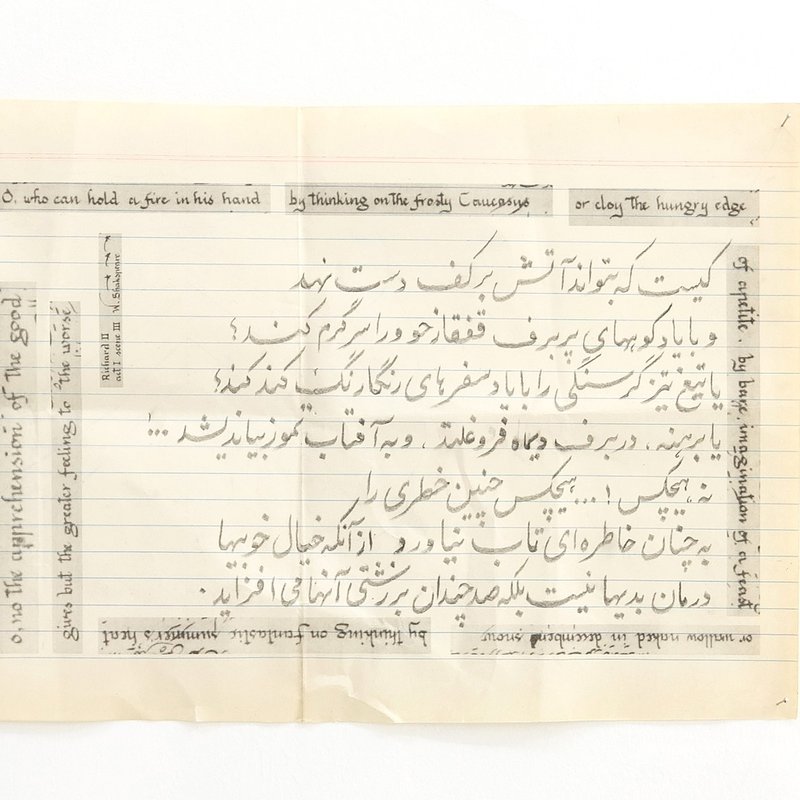 O, who can hold a fire in his hand
by thinking on the frosty Caucasus
or cloy the hungry edge
of apetite, by bare imagination of a feast
or wallow naked in decembers snow
by thinking on fantastic summer's heat
o, no the apprehension of the good
gives but the greater feeling to the worse
Richard II
act I scene III W. Shakspeare
کیست که بتواند آتش بر کف دست نهد
و با یاد کوههای پر برف قفقاز خود را سرگرم کند؟
یا تیغ تیز گرسنگی را با یاد سفره‌های رنگارنگ کند کند؟
یا برهنه، در برف دیماه فرو غلتد، و به آفتاب تموز بیاندیشد ...؟
نه، هیچکس! ... هیچکس چنین خطری را
به چنان خاطره‌ای تاب نیاورد از آنکه خیال خوبیها
درمان بدیها نیست بلکه صد چندان بر زشتی آنها می افزاید.